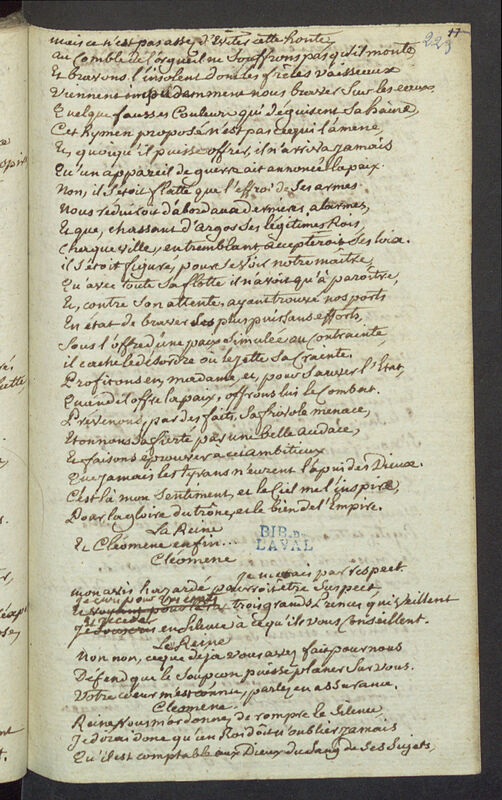 229 11
mais ce n'est pas assez d'Eviter cette honte,
au Comble de l'orgueil ne Souffrons pas qu'il monte,
Et bravons l'insolent dont les frêles vaisseaux
Viennent impudemment nous braver Sur les eaux
Quelque fausses Couleurs qui déguisent Sa haine,
Cet hymen proposé n'est pas ce qui l'amene,
Et, quoi qu'il puisse offrir, il n'arriva jamais
Qu'un appareil de guerre ait annoncé la paix.
Non, il s'étoit flatté que l'effroi de Ses armes
Nous réduiroit d'abord aux dernieres alarmes,
Et que, chassant d'Argos Ses légitimes Rois,
Chaque ville, en tremblant accepteroit Ses loix.
il S'étoit figuré, pour Se voir notre maître,
Qu'avec toute Sa flotte il n'avoit qu'à paroître,
Et, contre Son attente, ayant trouvé nos ports
En état de braver Ses plus puissans efforts,
Sous l'offre d'une paix Simulée au Contrainte,
il cache le désordre où le jette Sa Crainte.
Profitons en, madame, et, pour Sauver l'Etat,
Quand il offre la paix, offrons lui le Combat.
Prévenons, par des faits, Sa frivole menace,
Etonnons Sa fierté par une belle audace,
Et faisons éprouver à cet ambitieux
Que jamais les tyrans n'eurent l'apui des Dieux.
C'est là mon Sentiment, et le Ciel me l'inspire,
Pour la gloire du trône, et le bien de l'Empire.
La Reine
Et Cléomene enfin...
BIB. DE
LAVAL
Cléomene
Je me tais par respect
mon avis hazardé pourroit être Suspect,
trois grands Princes qui veillent
en Silence à ce qu'ils vous Conseillent.
La Reine
Non non, ce que déja vous avez fait pour nous
Défend que le Soupçon puisse planer Sur vous.
Votre coeur m'est connu, parlez en assurance.
Cleomene.
Reine, vous m'ordonnez de rompre le Silence
Je dirai donc qu'un Roi doit n'oublier jamais
Qu'il est comptable aux Dieux du Sang de Ses Sujets,